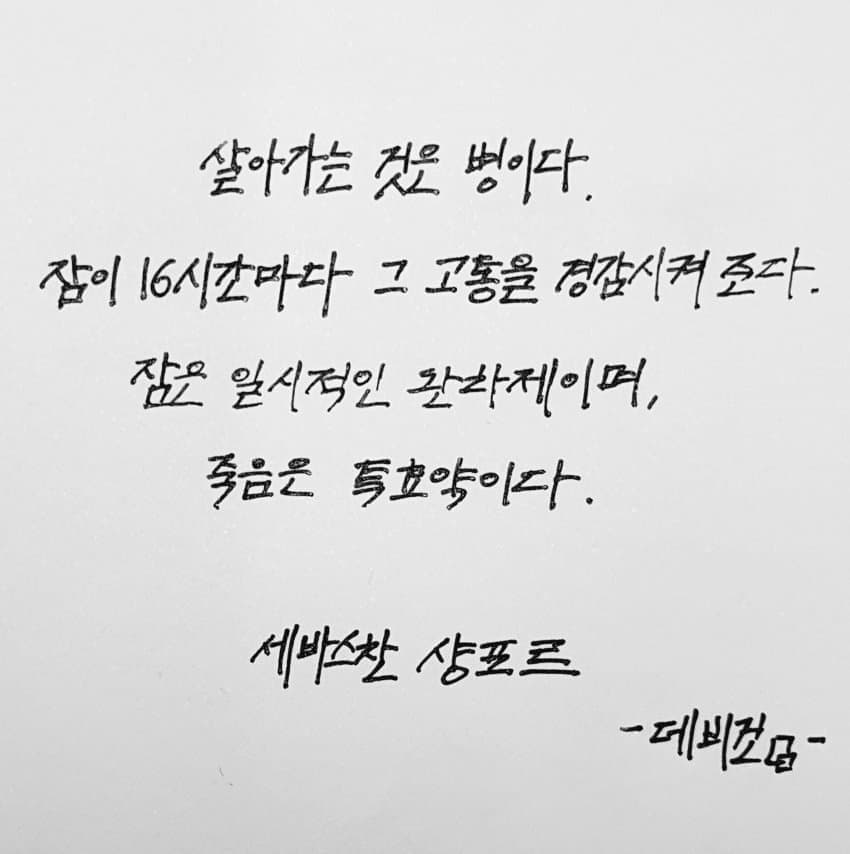 살아가는 것은 병이다.
잠이 16시간마다 그 고통을 경감시켜 준다.
잠은 일시적인 완화제이며,
죽음은 특효약이다.
세바스찬 샹포르